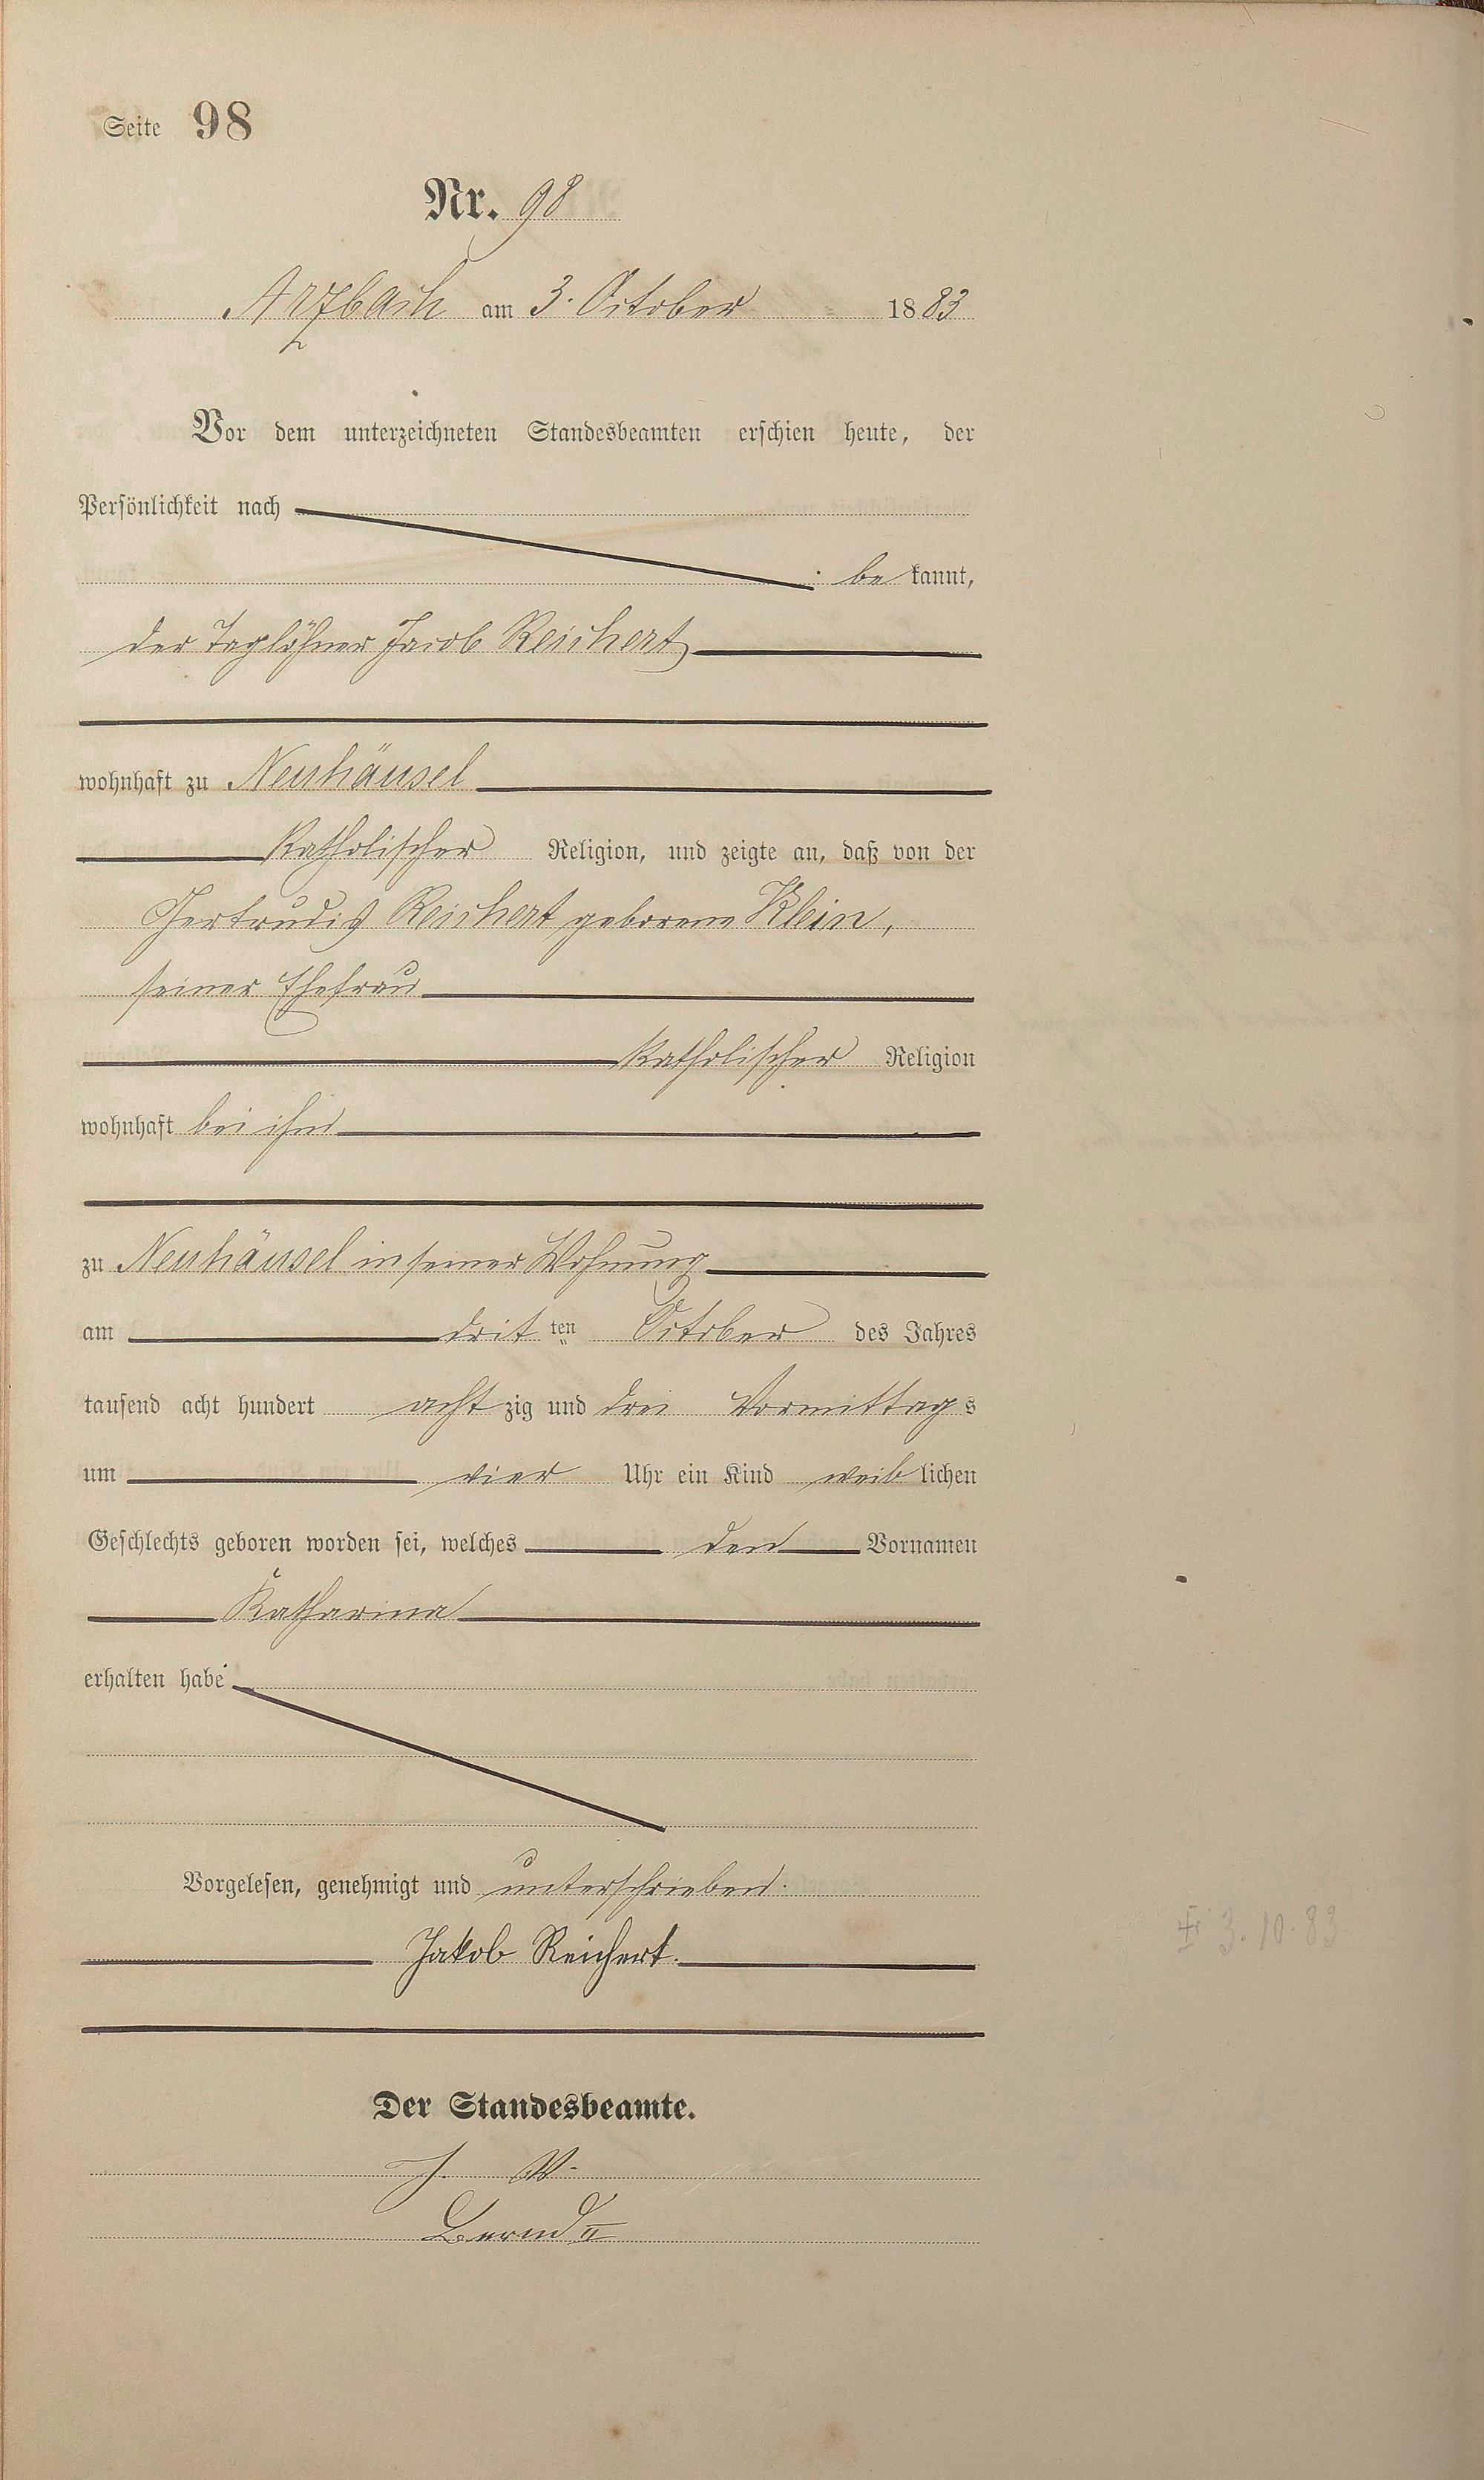 Seite 98
Nr. 98
Arzbach am 3. October 1883
Vor dem unterzeichneten Standesbeamten erschien heute, der
Persönlichkeit nach
bekannt,
der Taglöhner Jacob Reichert
wohnhaft zu Neuhäusel
Katholischer Religion, und zeigte an, daß von der
Gertrudis Reichert geborene Klein,
seiner Ehefrau
katholischer Religion
wohnhaft bei ihm
zu Neuhäusel in seiner Wohnung
am dritten October des Jahres
tausend acht hundert achtzig und drei Vormittags
um vier Uhr ein Kind weiblichen
Geschlechts geboren worden sei, welches den Vornamen
Katharina
erhalten habe
Vorgelesen, genehmigt und unterschrieben.
Jakob Reichert.
3.10.83
Der Standesbeamte.
J. V.